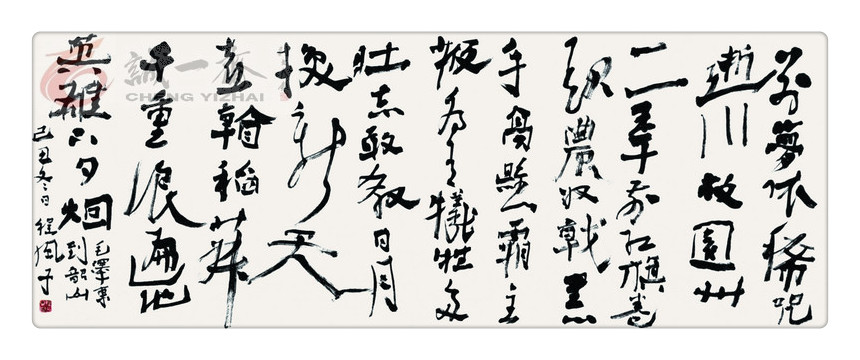 别梦依稀咒
逝川故園卅
二年前红旗卷
起農奴戟黑
手高懸霸主
鞭為有犧牲多
壮志敢教日月
换新天
喜看稻菽
千重浪遍地
英雄下夕烟
毛澤東
到韶山
己丑冬日程風子
誠一斋
CHENG YIZHAI